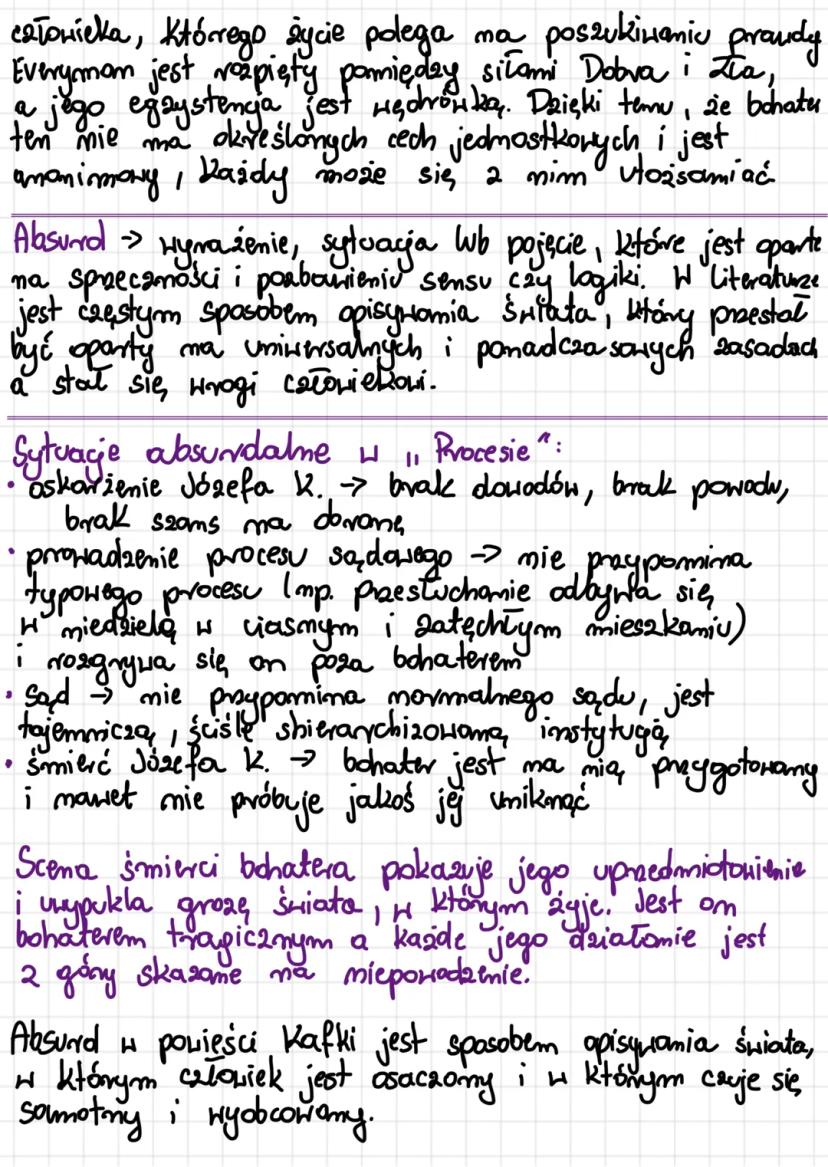 człowieka, którego życie polega na poszukiwaniu prawdy
Everyman jest rozpięty pomiędzy siłami Dobra i Zła,
a jego egzystencja jest wędrówką. Dzięki temu, że bohater
ten nie ma określonych cech jednostkowych i jest
anonimowy, każdy może się z nim utożsamiać
Absurd → wyrażenie, sytuacja lub pojęcie, które jest oparte
na sprzeczności i pozbawieniu sensu czy logiki. W literaturze
jest częstym sposobem opisywania świata, który przestał
być oparty na uniwersalnych i ponadczasowych zasadach
a stał się wrogi człowiekowi.
Sytuacje absurdalne w „Procesie":
• oskarżenie Józefa K. → brak dowodów, brak powodu,
brak szans na obronę
• prowadzenie procesu sądowego → nie przypomina
typowego procesu (np. przesłuchanie odbywa się
w niedzielę w ciasnym i zatęchłym mieszkaniu)
i rozgrywa się on poza bohaterem
• sąd → nie przypomina normalnego sądu, jest
tajemniczą, ściśle shierarchizowaną instytucją
• śmierć Józefa K. → bohater jest na nią przygotowany
i nawet nie próbuje jakoś jej uniknąć
Scena śmierci bohatera pokazuje jego uprzedmiotowienie
i uwypukla grozę świata, w którym żyje. Jest on
bohaterem tragicznym a każde jego działanie jest
z góry skazane na niepowodzenie.
Absurd w powieści Kafki jest sposobem opisywania świata,
w którym człowiek jest osaczony i w którym czuje się
samotny i wyobcowany.